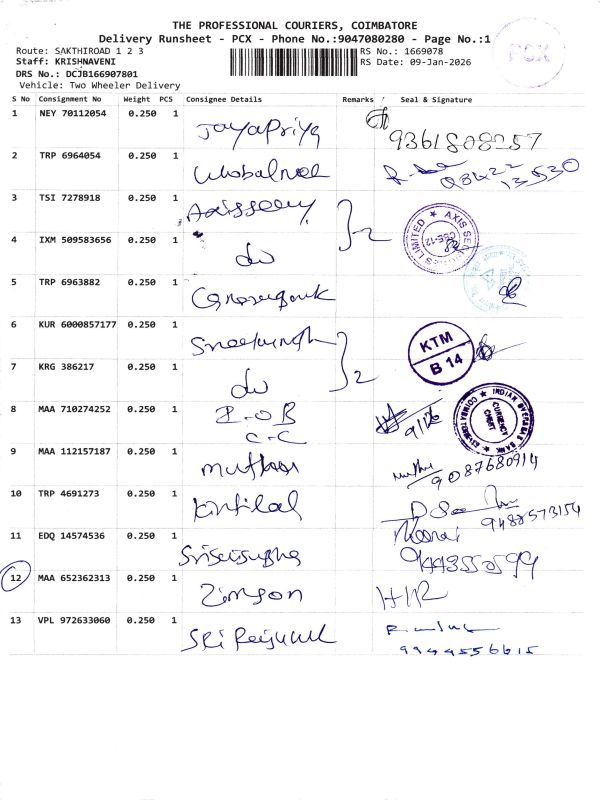 THE PROFESSIONAL COURIERS, COIMBATORE
Delivery Runsheet - PCX - Phone No.:9047080280 - Page No.:1
PCX
Route: SAKTHIROAD 1 2 3
RS No.: 1669078
Staff: KRISHNAVENI
RS Date: 09-Jan-2026
DRS No.: DCJB166907801
Vehicle: Two Wheeler Delivery
S No Consignment No Weight PCS Consignee Details Remarks Seal & Signature
1 NEY 70112054 0.250 1 Jayapriya 9361808257
2 TRP 6964054 0.250 1
3 TSI 7278918 0.250 1
2
AXIS SECURITIES LIMITED
4 IXM 509583656 0.250 1 do
5 TRP 6963882 0.250 1
6 KUR 6000857177 0.250 1
2
KTM
B 14
7 KRG 386217 0.250 1 do
8 MAA 710274252 0.250 1 I.O.B
C.C
INDIAN OVERSEAS BANK
CURRENCY CHEST
9 MAA 112157187 0.250 1 9087680914
10 TRP 4691273 0.250 1 Kirtilal 9488573154
11 EDQ 14574536 0.250 1
12 MAA 652362313 0.250 1 Zimson
13 VPL 972633060 0.250 1
9944556615